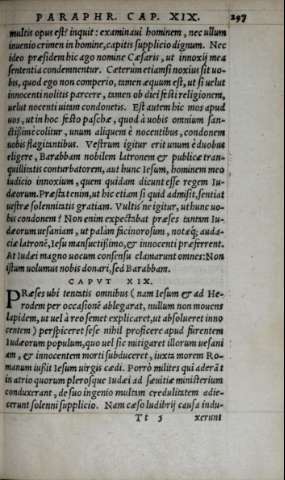 PARAPHR. CAP. XIX. 297
multis opus est? inquit: examinaui hominem, nec ullum
inuenio crimen in homine, capitis supplicio dignum. Nec
ideo præsidem hic ago nomine Cæsaris, ut innoxij mea
sententia condemnentur. Cæterum etiamsi noxius sit uo-
bis, quod ego non comperio, tamen æquum est, ut si uelut
innocenti nolitis parcere, tamen ob diei festi religionem,
uelut nocenti uitam condonetis. Est autem hic mos apud
uos, ut in hoc festo paschæ, quod à uobis omnium san-
ctissime colitur, unum aliquem è nocentibus, condonem
uobis flagitantibus. Vestrum igitur erit unum è duobus
eligere, Barabbam nobilem latronem & publicæ tran-
quillitatis conturbatorem, aut hunc Iesum, hominem meo
iudicio innoxium, quem quidam dicunt esse regem Iu-
dæorum. Præstat enim, ut hoc etiam si quid admisit, sentiat
uestræ solennitatis gratiam. Vultis'ne igitur, ut hunc uo-
bis condonem? Non enim expectabat præses tantam Iu-
dæorum uesaniam, ut palàm facinorosum, notæq; auda-
ciæ latronē, Iesu mansuetissimo, & innocenti præferrent.
At Iudæi magno uocum consensu clamarunt omnes: Non
istum uolumus nobis donari, sed Barabbam.
CAPVT XIX.
PRæses ubi tentatis omnibus (nam Iesum & ad He-
rodem per occasionē ablegarat, nullum non mouens
lapidem, ut uel à reo semet explicaret, ut absolueret inno
centem) perspiceret sese nihil proficere apud furentem
Iudæorum populum, quo uel sic mitigaret illorum uesani
am, & innocentem morti subduceret, iuxta morem Ro-
manum iussit Iesum uirgis cædi. Porrò milites qui aderāt
in atrio quorum plerosque Iudæi ad sæuitiæ ministerium
conduxerant, de suo ingenio multum credulitatem adie-
cerunt solenni supplicio. Nam cæso ludibrij causa indu-
Tt 5 xerunt